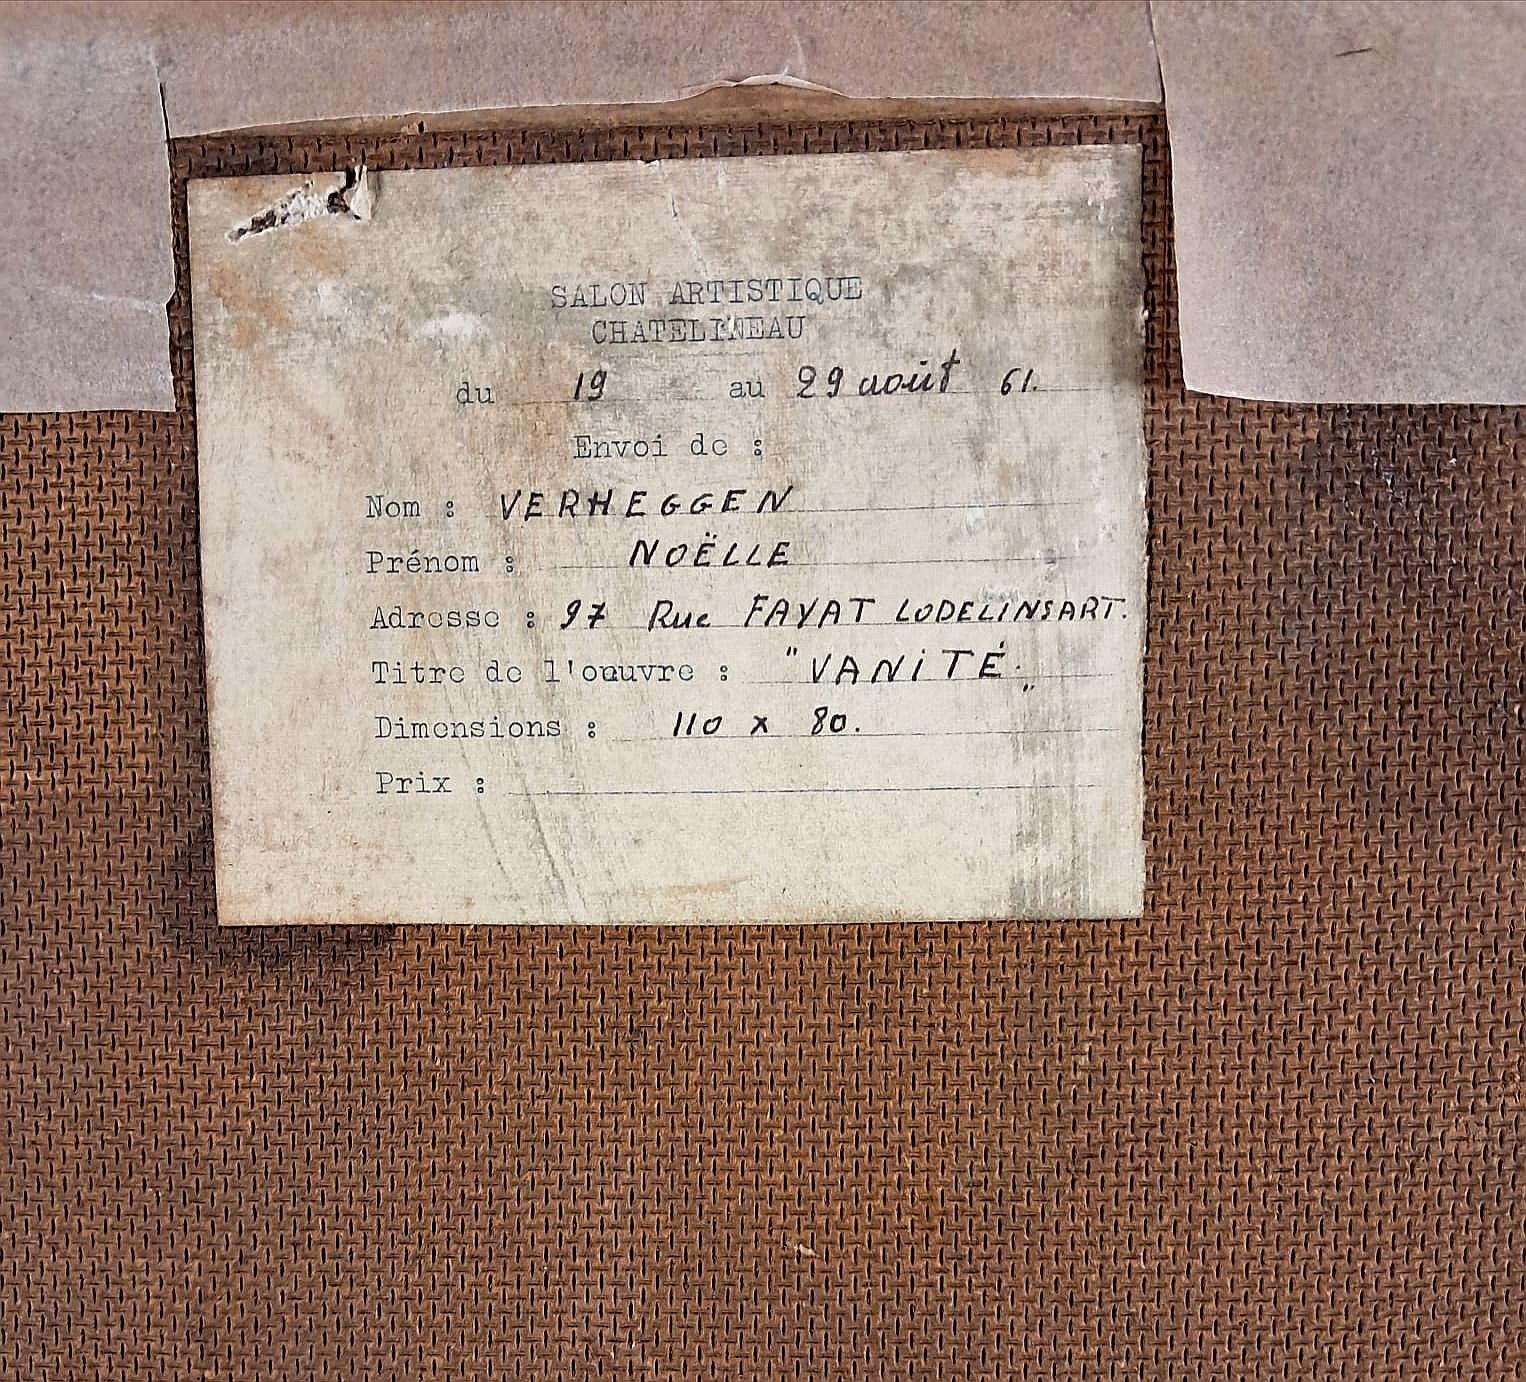 SALON ARTISTIQUE
CHATELINEAU
du 19 au 29 août 61.
Envoi de :
Nom : VERHEGGEN
Prénom : NOËLLE
Adresse : 97 Rue FAYAT LODELINSART.
Titre de l'oeuvre : "VANiTÉ."
Dimensions : 110 x 80.
Prix :